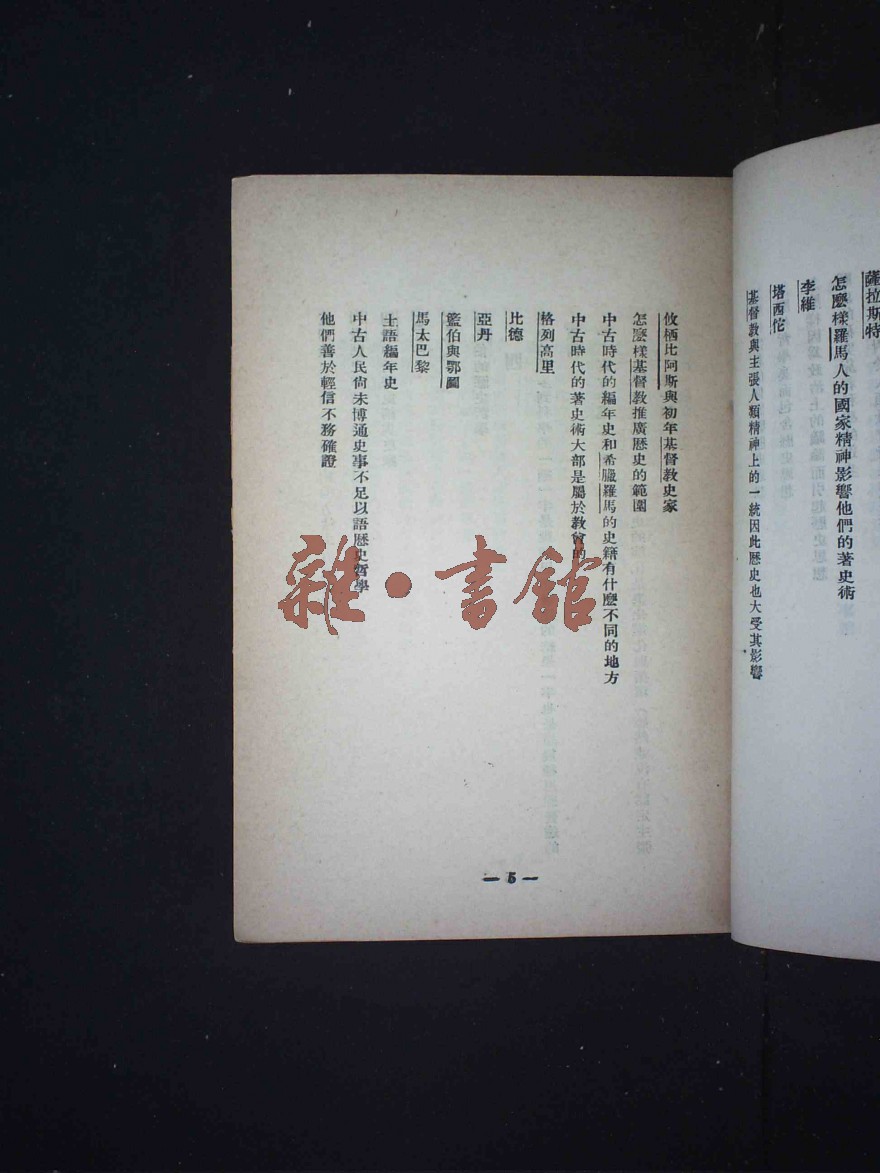 薩拉斯特
怎麼樣羅馬人的國家精神影響他們的著史術
李維
塔西佗
基督教與主張人類精神上的一統因此歷史也大受其影響
攸栖比阿斯與初年基督教史家
怎麼樣基督教推廣歷史的範圍
中古時代的編年史和希臘羅馬的史籍有什麼不同的地方
中古時代的著史術大都是屬於教會的
格列高里
比德
亞丹
籃伯與鄂圖
馬太巴黎
土語編年史
中古人民尙未博通史事不足以語歷史哲學
他們善於輕信不務確證
雜·書館
— 5 —